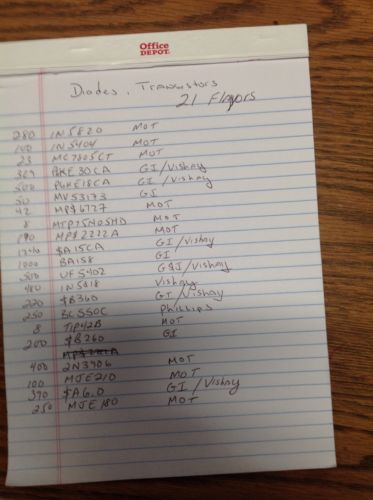 Office
DEPOT.
Diodes, Transistors
21 Flavors
280 1N5820 MOT
100 1N5404 MOT
23 MC7805CT MOT
369 P6KE30CA GI/Vishay
500 P6KE18CA GI/Vishay
50 MV53173 GI
42 MPS6727 MOT
8 MTP75N05HD MOT
190 MPS2222A MOT
SA15CA GI/Vishay
1000 BA158 GI
UF5402 G&I/Vishay
480 1N5818 Vishay
220 SB360 GI/Vishay
250 BC550C Phillips
8 TIP42B MOT
200 SB260 GI
400 2N3906 MOT
100 MJE210 MOT
370 SA6.0 GI/Vishay
250 MJE180 MOT